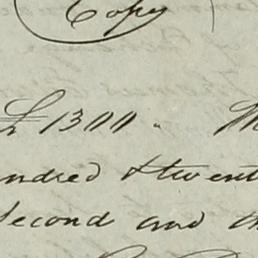 Copy
£ 1300 .
ndred & twent
second and th